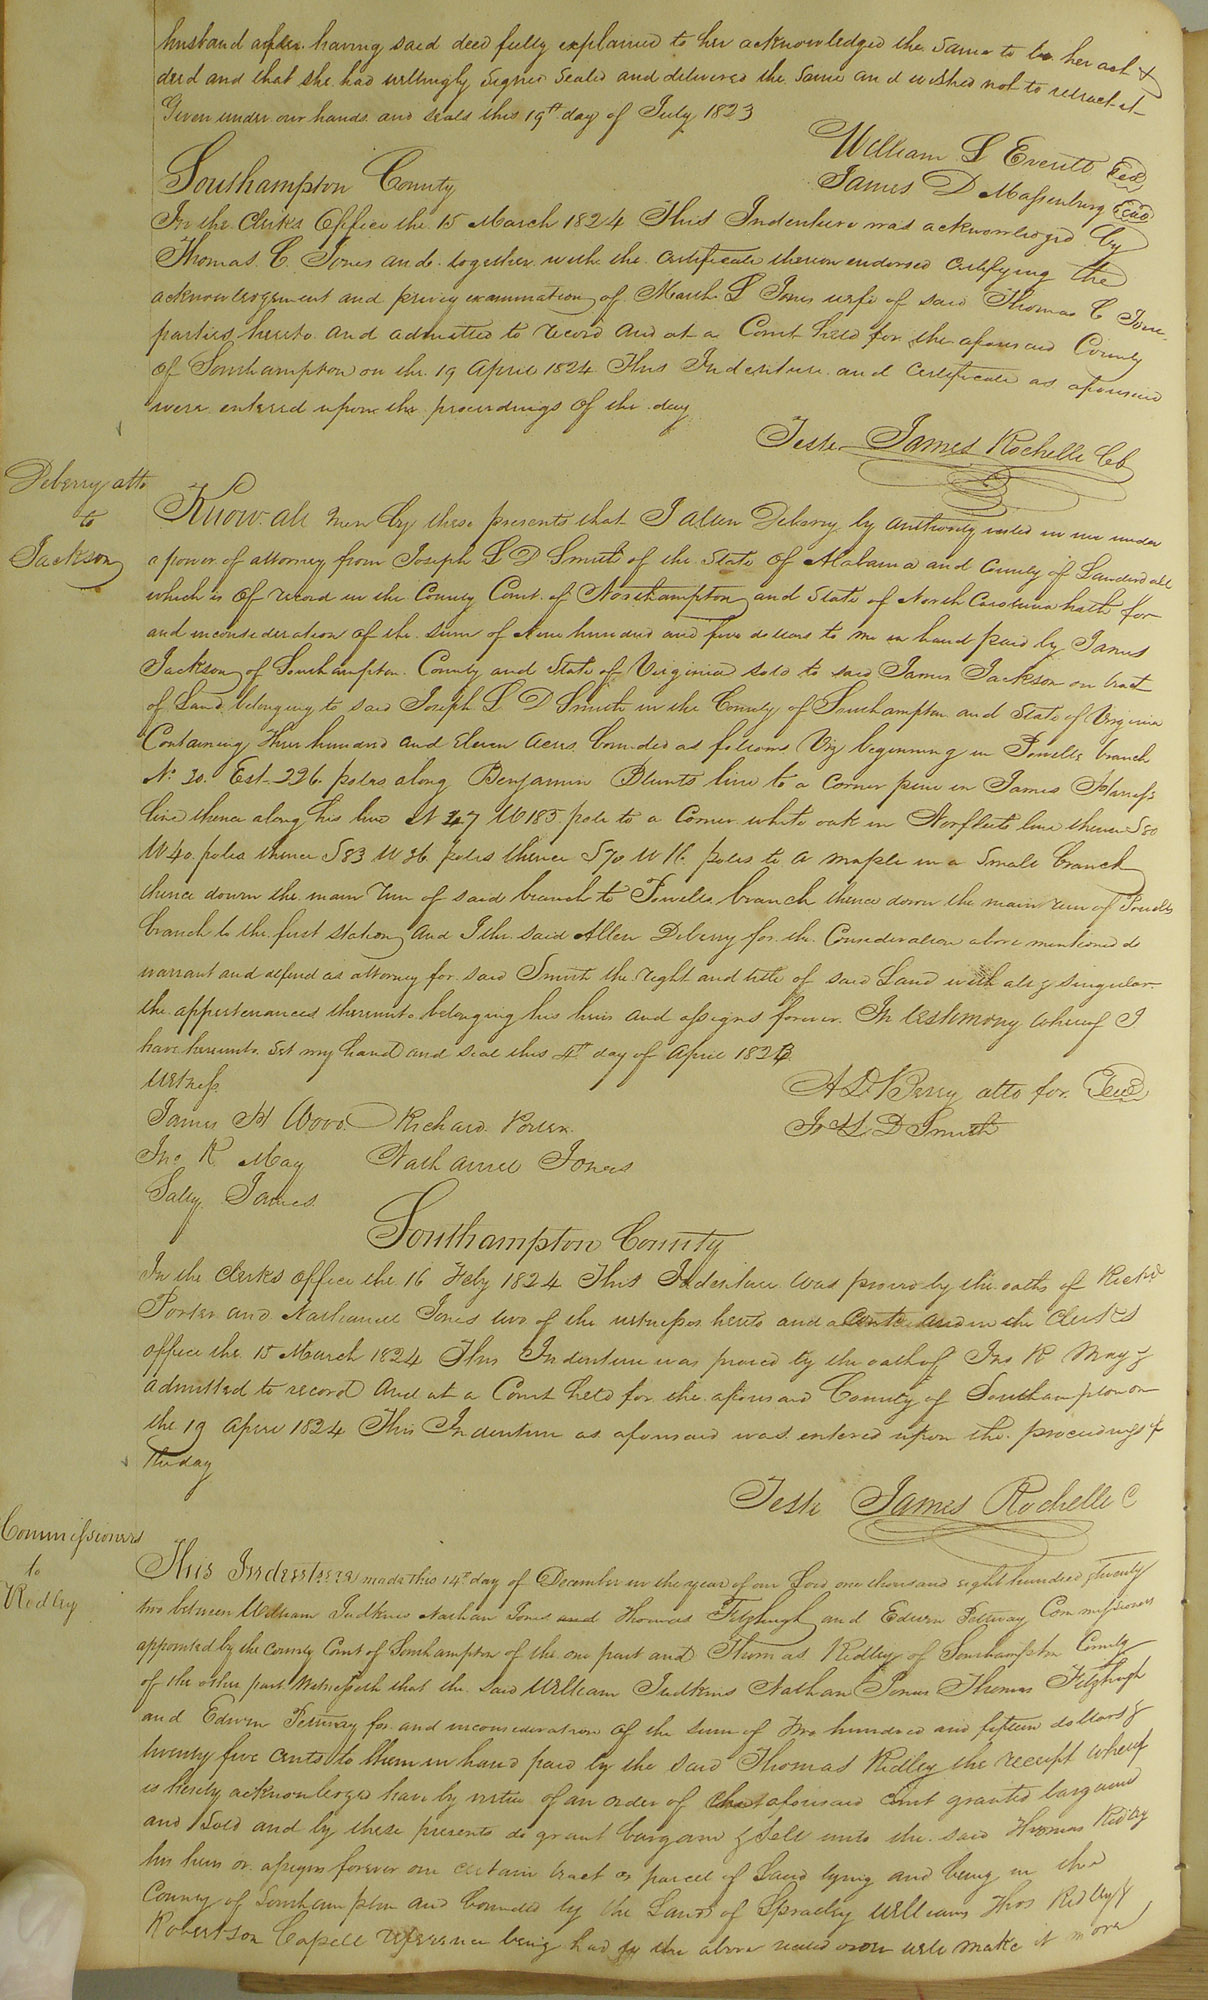 husband after having said deed fully explained to her acknowledged the same to be her act &
deed and that she had willingly signed sealed and delivered the same and wished not to retract it
Given under our hands and seals this 19th day of July 1823
William S Everitt Seal
James D Massenburg Seal
Southampton County
In the Clerks Office the 15 March 1824 This Indenture was acknowledged by
Thomas C Jones and together with the certificate thereon endorsed certifying the
acknowledgement and privy examination of L Jones wife of said Thomas C Jones
parties hereto and admitted to record And at a Court held for the aforesaid County
of Southampton on the 19 April 1824 This Indenture and certificate as aforesaid
were entered upon the proceedings of the day
Teste James Rochelle
Deberry atto
to
Jackson
Know all men by these presents that I Allen Deberry by authority vested in me under
a power of attorney from Joseph L D Smith of the State of Alabama and County of Lauderdale
which is of record in the County Court of Northampton and State of North Carolina hath for
and inconsideration of the sum of hundred and five dollars to me in hand paid by James
Jackson of Southampton County and State of Virginia sold to said James Jackson on tract
of Land belonging to said Joseph L D Smith in the County of Southampton and State of Virginia
Containing Three hundred and Eleven acres bounded as follows Viz beginning in branch
No 30 Est 226 poles along Benjamin Blunts line to a corner pine in James Harriss
line thence along his line N 47 W 185 pole to a Corner white oak in Norfleets line thence S 80
W 40 poles thence S 83 W 36 poles thence S 70 W 16 poles to a maple in a small branch
thence down the main run of said branch to branch thence down the main run of
branch to the first station And I the said Allen Deberry for the Consideration above mentioned do
warrant and defend as attorney for said Smith the right and title of said Land with all & singular
the appertenances thereunto belonging his heirs and assigns forever. In testimony whereof I
have hereunto set my hand and seal this 4th day of April 1823
Witness
A DeBerry atto for Seal
James H Wood Richard Porter
Jos L D Smith
Jno R May Nathaniel Jones
Sally James
Southampton County
In the Clerks office the 16 Feby 1824 This Indenture was proved by the oaths of Richd
Porter and Nathaniel Jones two of the witnesses hereto and and in the Clerks
office the 15 March 1824 This Indenture was proved by the oath of Jno R May &
admitted to record And at a Court held for the aforesaid County of Southampton on
the 19 April 1824 This Indenture as aforesaid was entered upon the proceedings of
the day
Teste James Rochelle C
Commissioners
to
Ridley
This Indenture made this 14th day of December in the year of our Lord one thousand eight hundred & twenty
two between William Judkins Nathan Jones and Thomas Fitzhugh and Edwin Pettway Commissioners
appointed by the County Court of Southampton of the one part and Thomas Ridley of Southampton County
of the other part Witnesseth that the said William Judkins Nathan Jones Thomas Fitzhugh
and Edwin Pettway for and inconsideration of the sum of Two hundred and fifteen dollars &
twenty five cents to them in hand paid by the said Thomas Ridley the receipt whereof
is hereby acknowledged have by virtue of an order of that aforesaid Court granted bargained
and Sold and by these presents do grant bargain & sell unto the said Thomas Ridley
his heirs or assigns forever one certain tract or parcel of Land lying and being in the
County of Southampton and bounded by the Lands of Spratley Williams Thos Ridley &
Robertson Capell reference being had to the above recited order will make it more